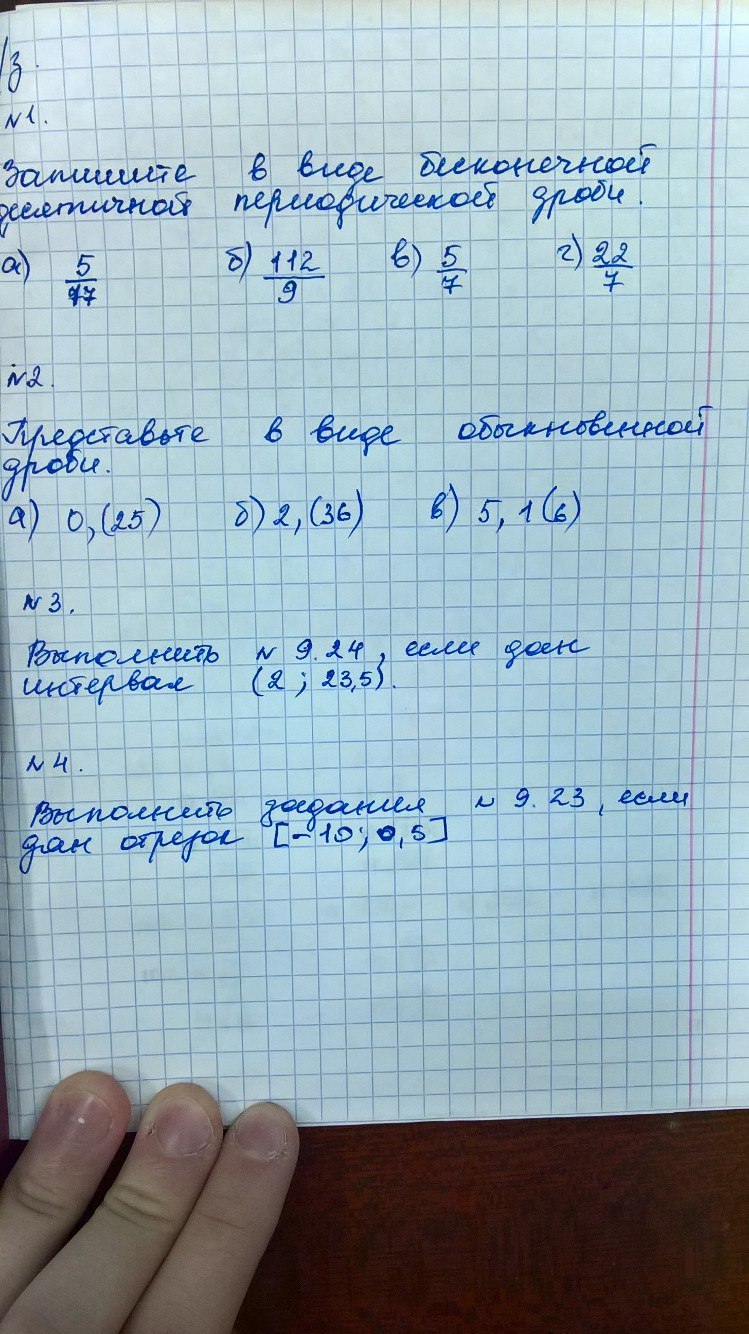 /з.
№1.
Запишите в виде бесконечной
десятичной периодической дроби.
а) 5/17 б) 112/9 в) 5/7 г) 22/7
№2.
Представьте в виде обыкновенной
дроби.
а) 0,(25) б) 2,(36) в) 5,1(6)
№3.
Выполнить № 9.24, если дан
интервал (2; 23,5).
№4.
Выполнить задания № 9.23, если
дан отрезок [-10; 0,5]